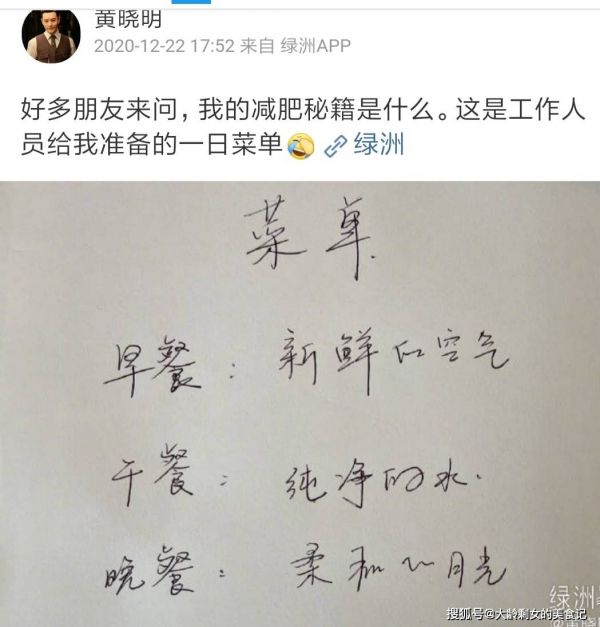 黄晓明
2020-12-22 17:52 来自 绿洲APP
好多朋友来问，我的减肥秘籍是什么。这是工作人
员给我准备的一日菜单 绿洲
菜单
早餐：新鲜的空气
午餐：纯净的水.
晚餐：柔和的月光
绿洲
搜狐号@大龄剩女的美食记